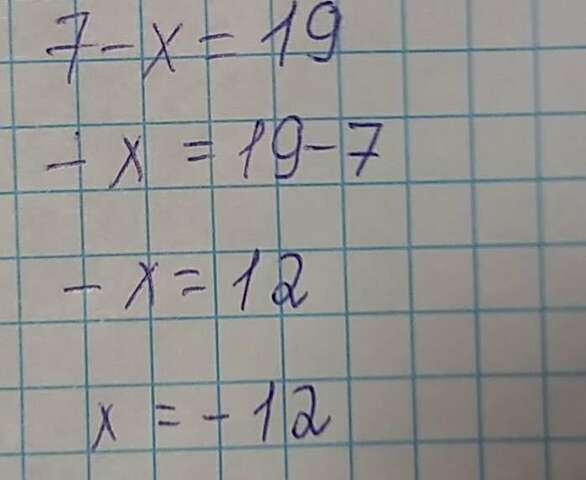 7-x=19
-x=19-7
-x=12
x=-12